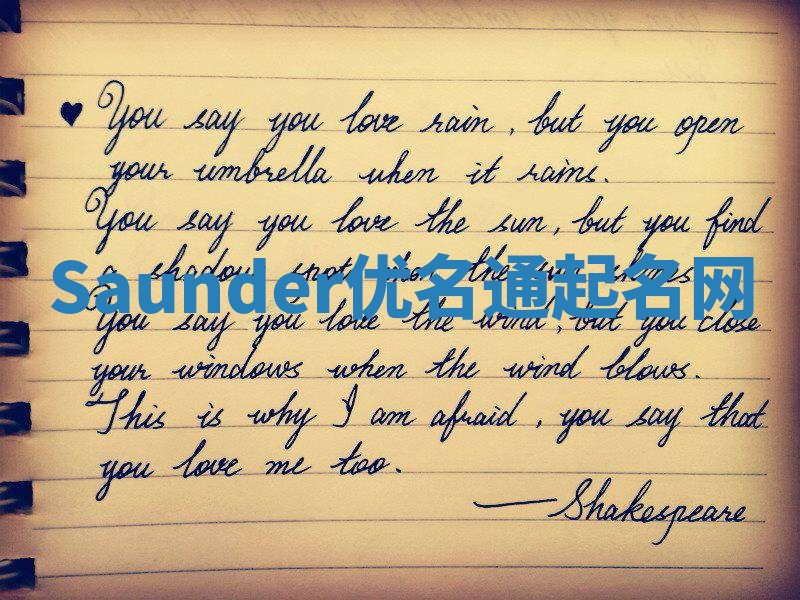 ♥ You say you love rain, but you open
your umbrella when it rains.
You say you love the sun, but you find
a shadow spot when the sun shines.
Saunder优名通起名网
You say you love the wind, but you close
your windows when the wind blows.
This is why I am afraid, you say that
you love me too.
—Shakespeare